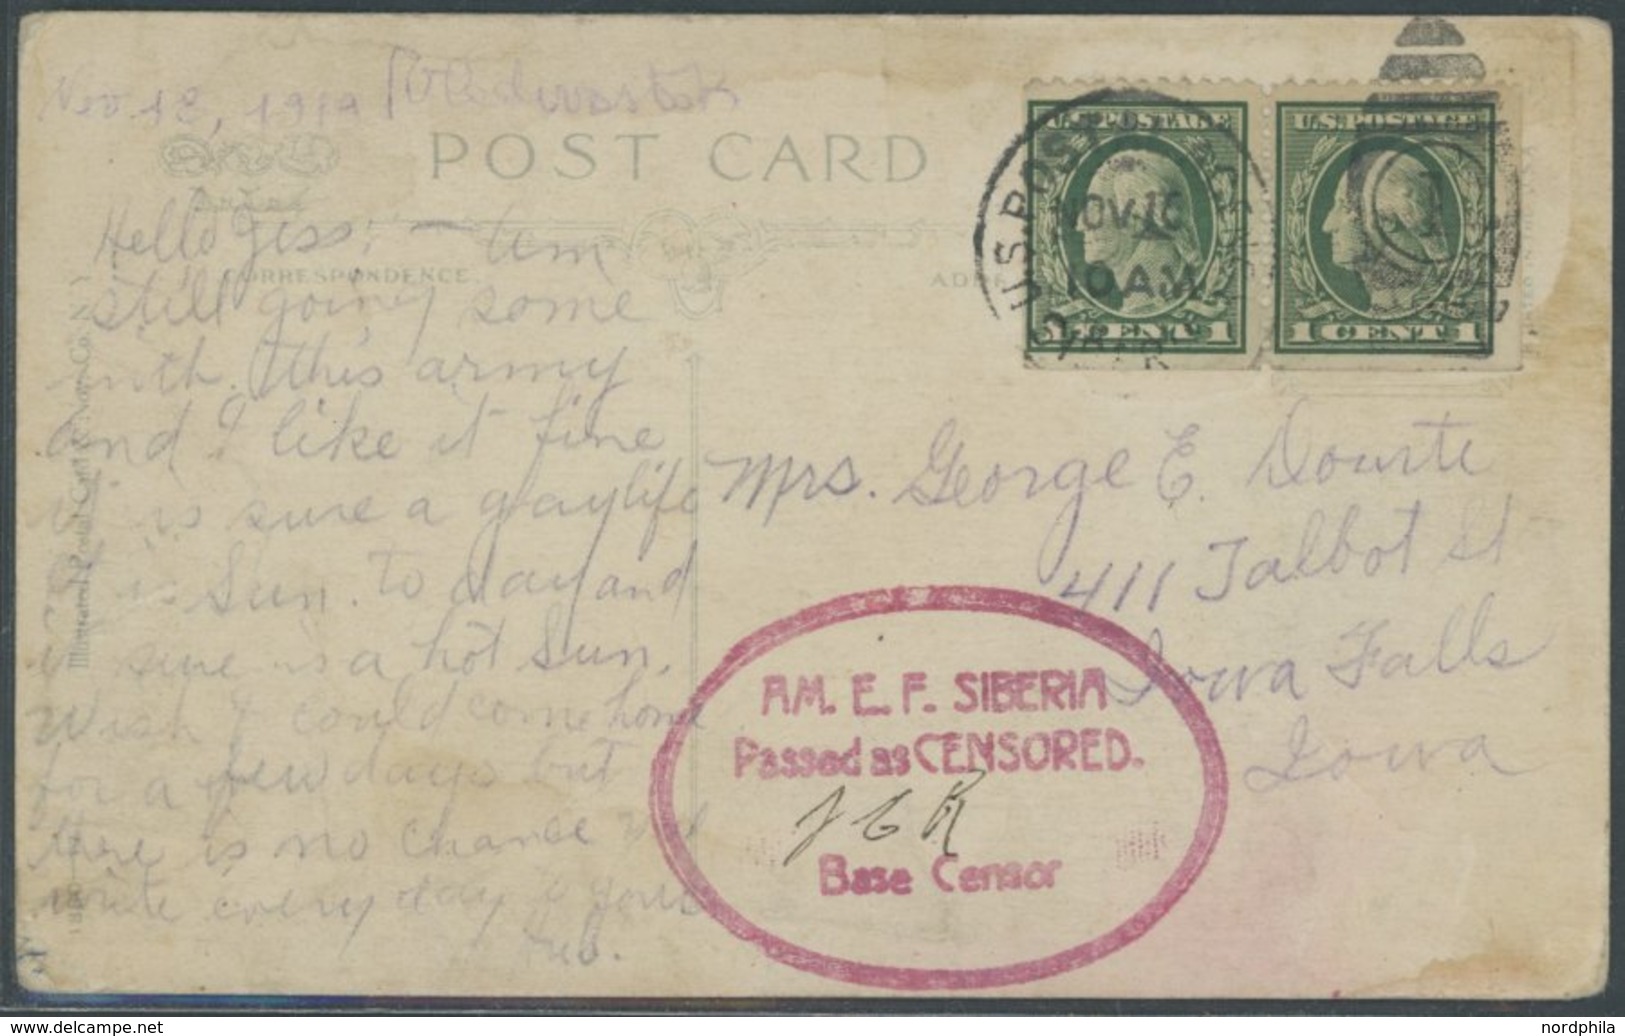 Nov 12, 1919 Vladivostok
POST CARD
U.S. POSTAGE
U.S. POSTAGE
NOV 16
10 AM
CENT 1
1 CENT 1
CORRESPONDENCE
Hello Jess: — Am
still going some
with this army
and I like it fine
is sure a gay life
is Sun. to day and
sure is a hot Sun.
Wish I could come home
for a few days but
there is no chance will
write every day
Hub.
Illustrated Postal Card & Nov. Co. N.Y.
Mrs. George E. Dourte
411 Talbot St
Iowa Falls
Iowa
AM. E. F. SIBERIA
Passed as CENSORED.
Base Censor
nordphila
www.delcampe.net